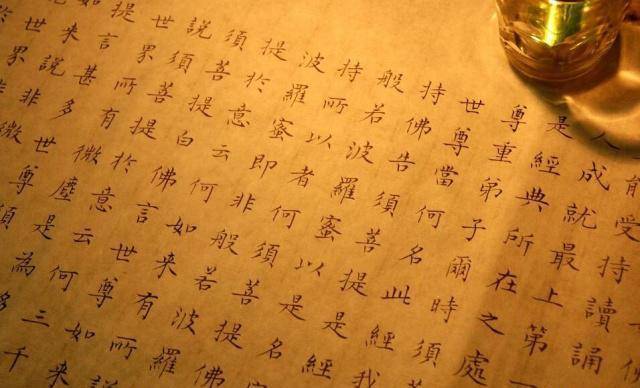 能受持讀誦
人成就最上第
是經典所在之處
尊重弟子爾時須
世尊當何名此經我
持佛告須菩提是經
般若波羅蜜以是名
持所以者何須菩提佛
波羅蜜即非般若波羅
提於意云何如來有所
須菩提白佛言世尊如來
說須菩提於意云何三千
世界所有微塵是為多
提言甚多世尊須
如來說非微
世界非世